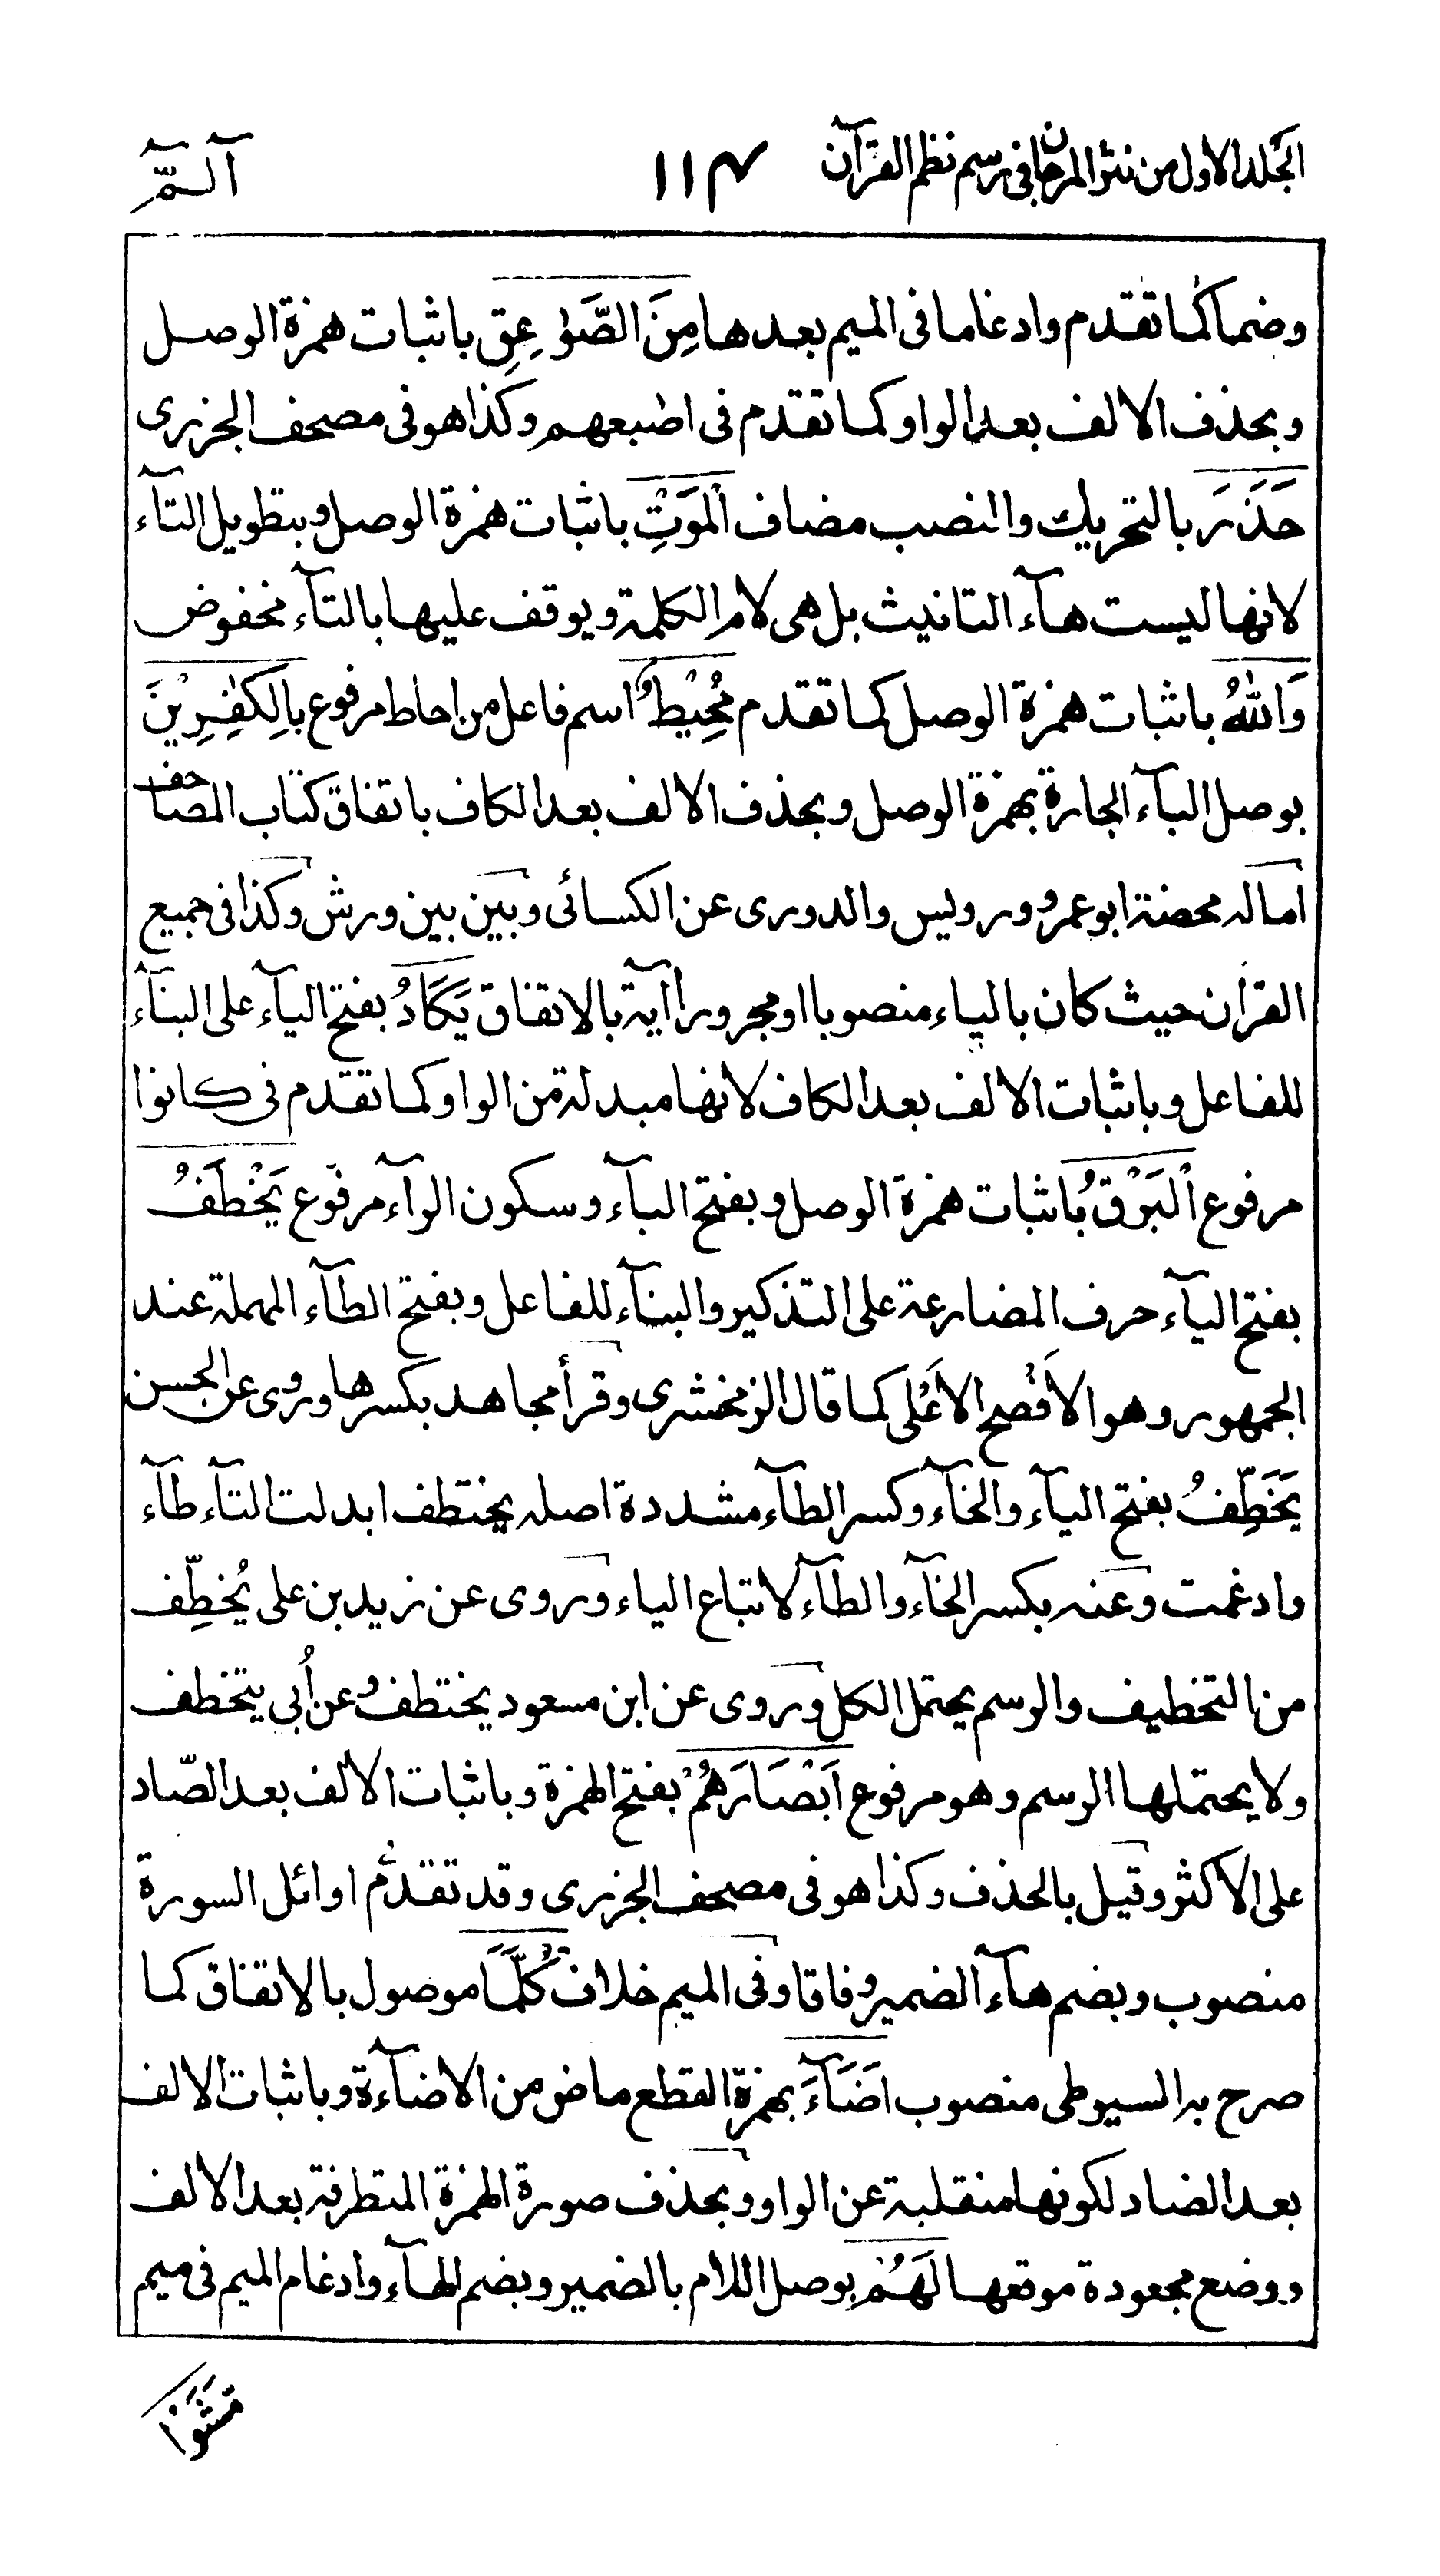 الجلد الاول من نثر المرجان فى رسم نظم القرآن ١١٤ آلـمّٓ
وضما كما تقدم وادغاما فى الميم بعدها مِنَ الصَّوٰعِقِ باثبات همزة الوصل
وبحذف الالف بعد الواو كما تقدم فى اصٰبعهم وكذا هو فى مصحف الجزرى
حَذَرَ بالتحريك والنصب مضاف الْمَوْتِ باثبات همزة الوصل وبتطويل التآء
لانها ليست هآء التانيث بل هى لام الكلمة ويوقف عليها بالتآء مخفوض
وَاللّٰهُ باثبات همزة الوصل كما تقدم مُحِيْطٌ اسم فاعل من احاط مرفوع بِالْكٰفِرِيْنَ
بوصل البآء الجارة بهمزة الوصل وبحذف الالف بعد الكاف باتفاق كتاب المصاحف
اماله محضة ابو عمرو ورويس والدورى عن الكسائى وبين بين ورش وكذا فى جميع
القرآن حيث كان بالياء منصوبا او مجرورا آية بالاتفاق يَكَادُ بفتح اليآء على البنآء
للفاعل وباثبات الالف بعد الكاف لانها مبدلة من الواو كما تقدم فى كانوا
مرفوع الْبَرْقُ باثبات همزة الوصل وبفتح البآء وسكون الرآء مرفوع يَخْطَفُ
بفتح اليآء حرف المضارعة على التذكير والبنآء للفاعل وبفتح الطآء المهملة عند
الجمهور وهو الاَفْصح الاَعْلى كما قال الزمخشرى وقرأ مجاهد بكسرها وروى عن الحسن
يَخَطِّفُ بفتح اليآء والخآء وكسر الطآء مشددة اصله يختطف ابدلت التآء طآء
وادغمت وعنه بكسر الخآء والطآء لاتباع الياء وروى عن زيد بن على يُخطِّف
من التخطيف والرسم يحتمل الكل وروى عن ابن مسعود يختطف وعن أُبى يتخطف
ولا يحتملها الرسم وهو مرفوع اَبْصَارَهُمْ بفتح الهمزة وباثبات الالف بعد الصّاد
على الاكثر وقيل بالحذف وكذا هو فى مصحف الجزرى وقد تقدم اوائل السورة
منصوب وبضم هآء الضمير وفاقا وفى الميم خلاف كُلَّمَا موصول بالاتفاق كما
صرح به السيوطى منصوب اَضَآءَ بهمزة القطع ماض من الاضآءة وباثبات الالف
بعد الضاد لكونها منقلبة عن الواو وبحذف صورة الهمزة المتطرفة بعد الالف
ووضع مجعودة موقعها لَهُمْ بوصل اللام بالضمير وبضم الهآء وادغام الميم فى ميم
مَّشَوْا